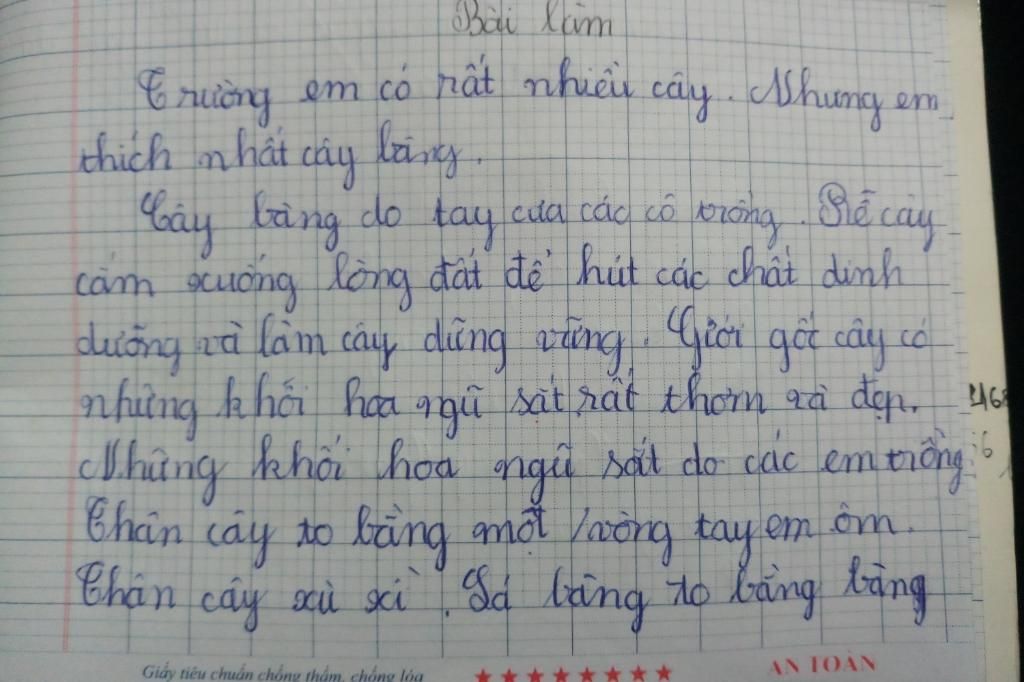 Bài làm
Trường em có rất nhiều cây. Nhưng em
thích nhất cây bàng.
Cây bàng do tay của các cô trồng. Rễ cây
cắm xuống lòng đất để hút các chất dinh
dưỡng và làm cây đũng vũng. Giưới gốc cây có
những khối hoa ngũ sắt rất thơm và đẹp.
Những khối hoa ngũ sắt do các em trồng
Thân cây to bằng một vòng tay em ôm.
Thân cây xù xì. Lá bàng to bằng bàng
Giấy tiêu chuẩn chống thấm, chống lóa
AN TOÀN